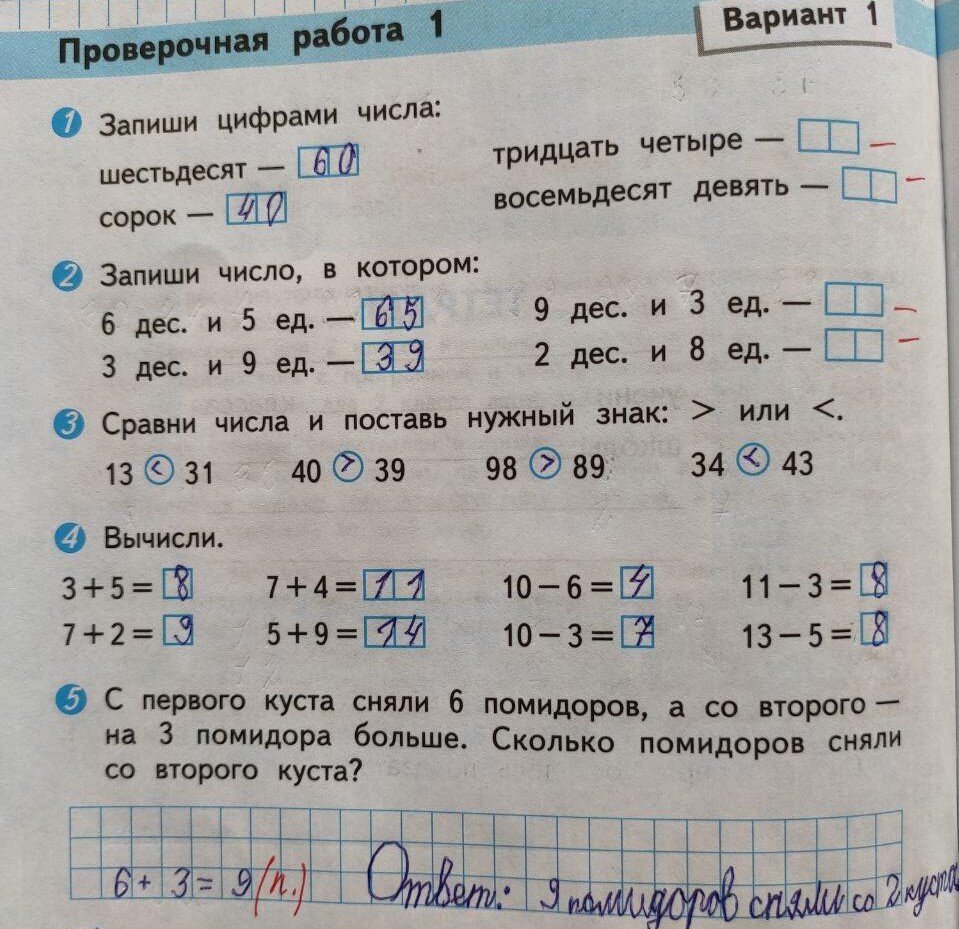 Проверочная работа 1
Вариант 1
1 Запиши цифрами числа:
шестьдесят — 60
тридцать четыре —
сорок — 40
восемьдесят девять —
2 Запиши число, в котором:
6 дес. и 5 ед. — 65
9 дес. и 3 ед. —
3 дес. и 9 ед. — 39
2 дес. и 8 ед. —
3 Сравни числа и поставь нужный знак: > или <.
13 < 31 40 > 39 98 > 89 34 < 43
4 Вычисли.
3 + 5 = 8 7 + 4 = 11 10 − 6 = 4 11 − 3 = 8
7 + 2 = 9 5 + 9 = 14 10 − 3 = 7 13 − 5 = 8
5 С первого куста сняли 6 помидоров, а со второго —
на 3 помидора больше. Сколько помидоров сняли
со второго куста?
6 + 3 = 9 (п.) Ответ: 9 помидоров сняли со 2 куста